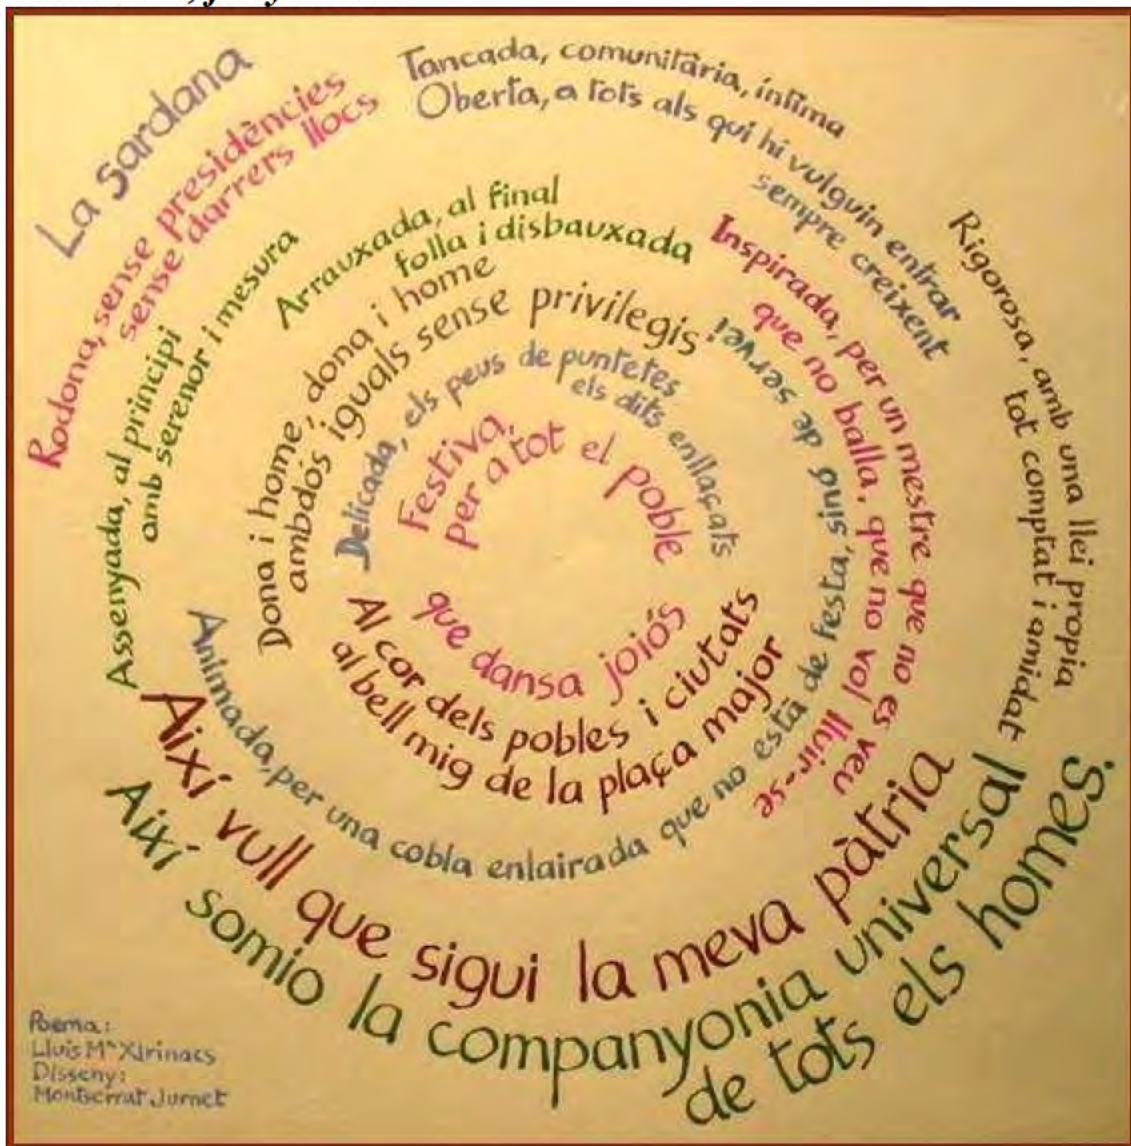 La Sardana
Rodona, sense presidències
sense darrers llocs
Tancada, comunitària, íntima
Oberta, a tots als qui hi vulguin entrar
sempre creixent
Rigorosa, amb una llei propia
tot comptat i amidat
Assenyada, al principi
amb serenor i mesura
Arrauxada, al final
folla i disbauxada
Inspirada, per un mestre que no es veu
que no balla, que no vol lluir-se
Animada, per una cobla enlairada que no està de festa, sinó de servei
Dona i home, dona i home
ambdós iguals sense privilegis
Delicada, els peus de puntetes
els dits enllaçats
Festiva,
per a tot el poble
que dansa joiós
Al cor dels pobles i ciutats
al bell mig de la plaça major
Així vull que sigui la meva pàtria
Així somio la companyonia universal
de tots els homes.
Poema:
Lluís Mª Xirinacs
Disseny:
Montserrat Jurnet